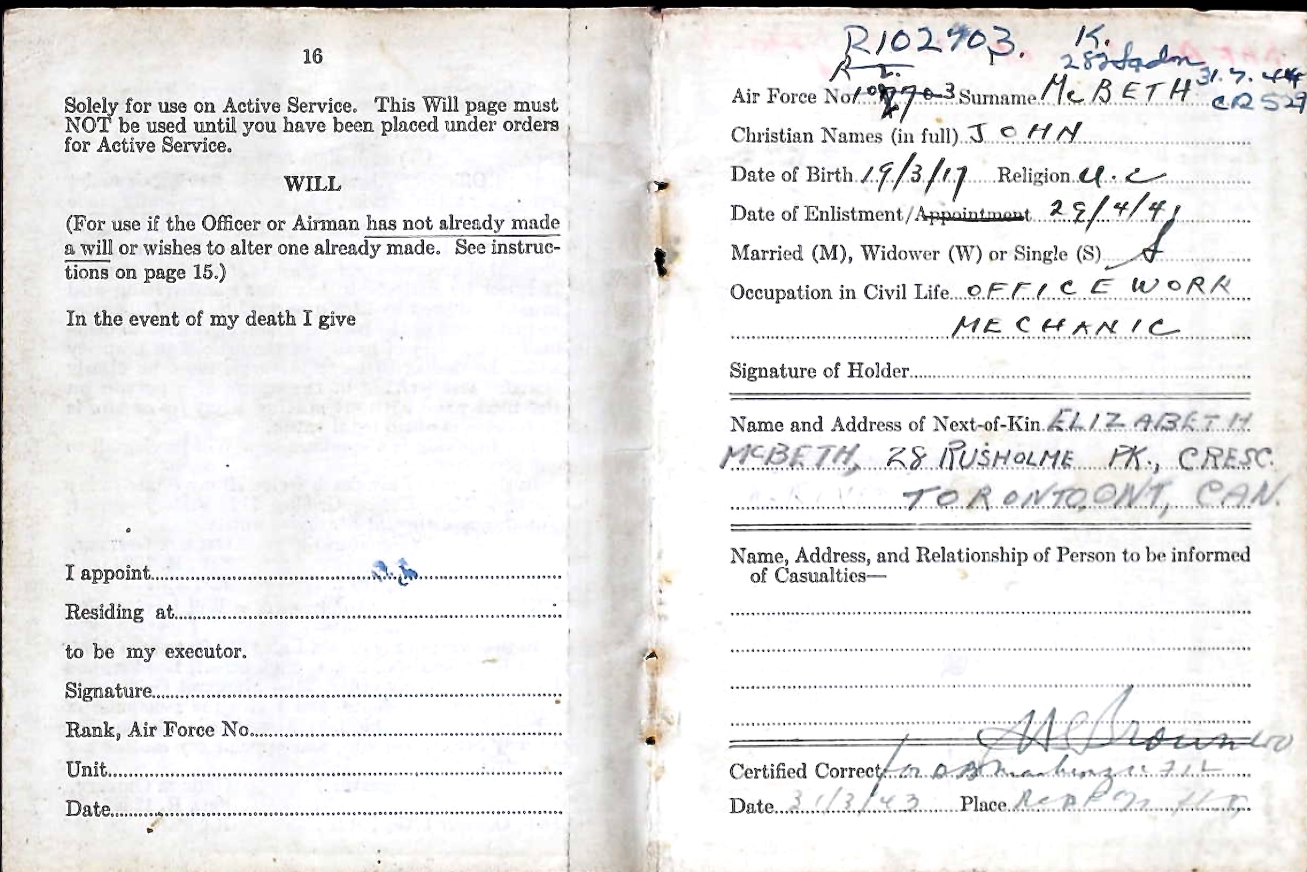 16
Solely for use on Active Service. This Will page must
NOT be used until you have been placed under orders
for Active Service.
WILL
(For use if the Officer or Airman has not already made
a will or wishes to alter one already made. See instruc-
tions on page 15.)
In the event of my death I give
I appoint
Residing at
to be my executor.
Signature
Rank, Air Force No.
Unit
Date
R102703. K.
282 Sqdn 31.7.44
Air Force No. Surname McBETH CR529
Christian Names (in full) JOHN
Date of Birth 19/3/17 Religion U.C
Date of Enlistment/Appointment 29/4/41
Married (M), Widower (W) or Single (S) S
Occupation in Civil Life OFFICE WORK
MECHANIC
Signature of Holder
Name and Address of Next-of-Kin ELIZABETH
McBETH, 28 RUSHOLME PK., CRESC.
TORONTO, ONT, CAN.
Name, Address, and Relationship of Person to be informed
of Casualties—
Brown
Certified Correct for
Date 31/3/43 Place